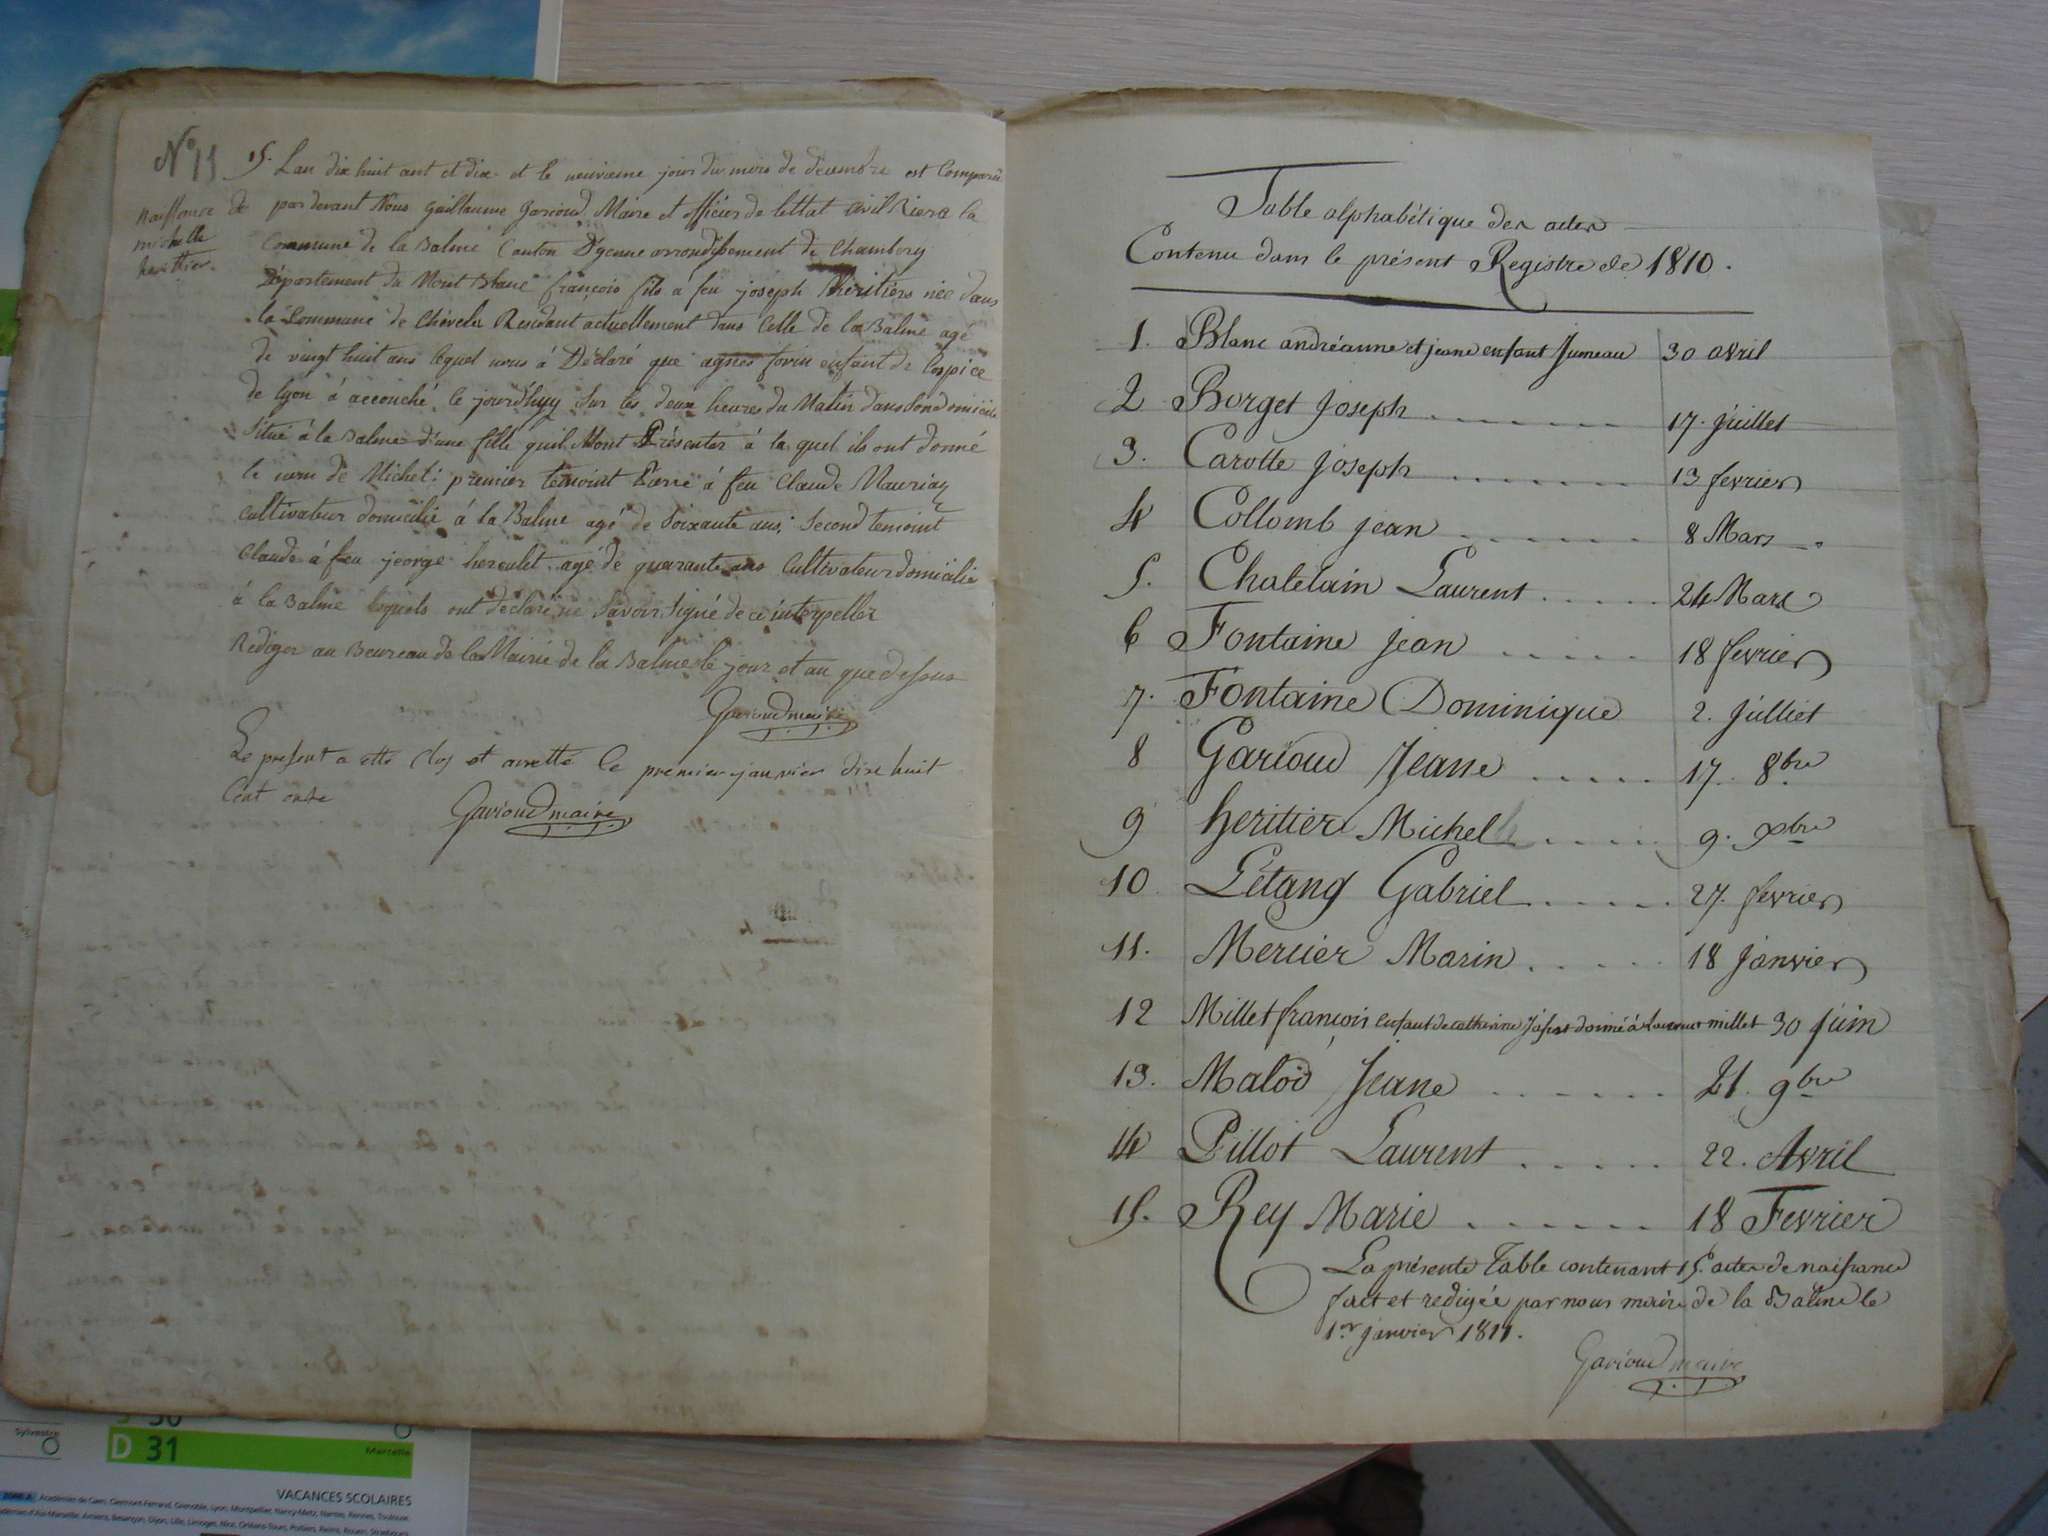 No 15
naissance de
michelle
heritier.
15. Lan dix huit cent et dix et le neuvieme jour du mois de decembre est Comparû
pardevant Nous Guillaume Garioud Maire et officier de lettat Civil Riere la
Commune de la Balme Canton D'yenne arrondissement de Chambery
Département du Mont Blanc françois fils à feu joseph héritiers née dans
la Commune de Chevelu Residant actuellement dans Celle de la Balme agé
de vingt huit ans lequel nous à Déclaré que agnes forin enfant de lospice
de lyon à accouché le jourdhuy sur les deux heures du Matin dans son domicile
Situé à la Balme d'une fille quil Mont Présenter à la quel ils ont donné
le nom de Michel: premier temoint Pierre à feu Claude Mauriaz
Cultivateur domicilié à la Balme agé de Soixante ans; Second temoint
Claude à feu jeorge herculet agé de quarante ans Cultivateur domicilié
à la Balme lesquels ont déclaré ne Savoir Signé de ce interpeller
Rediger au Beureau de la Mairie de la Balme le jour et an que dessus
Garioud maire
Le present a etté Clos et arretté le premier janvier dix huit
Cent onze
Garioud maire
Table alphabétique des actes
Contenu dans le présent Registre de 1810.
1. Blanc andréanne et jeane enfant Jumeau 30 avril
2 Borget Joseph 17. juillet
3. Carotte Joseph 13 fevrier
4 Collomb jean 8 Mars
5. Chatelain Laurent 24 Mars
6 Fontaine jean 18 fevrier
7. Fontaine Dominique 2. Julliet
8 Garioud Jeane 17. 8bre
9 heritier Michelle 9. xbre
10 Létang Gabriel 27. fevrier
11. Mercier Marin 18 janvier
12 Millet françois enfant de catherine donné à Laurent millet 30 juin
13. Malod Jeane 21. 9bre
14 Pillot Laurent 22. Avril
15. Rey Marie 18 Fevrier
La présente Table contenant 15. actes de naissance
fait et redigée par nous maire de la Balme le
1er janvier 1811.
Garioud maire
S 30
Sylvestre
D 31
Marcelle
VACANCES SCOLAIRES
ZONE A Académies de Caen, Clermont-Ferrand, Grenoble, Lyon, Montpellier, Nancy-Metz, Nantes, Rennes, Toulouse
démies d'Aix-Marseille, Amiens, Besançon, Dijon, Lille, Limoges, Nice, Orléans-Tours, Poitiers, Reims, Rouen, Strasbourg